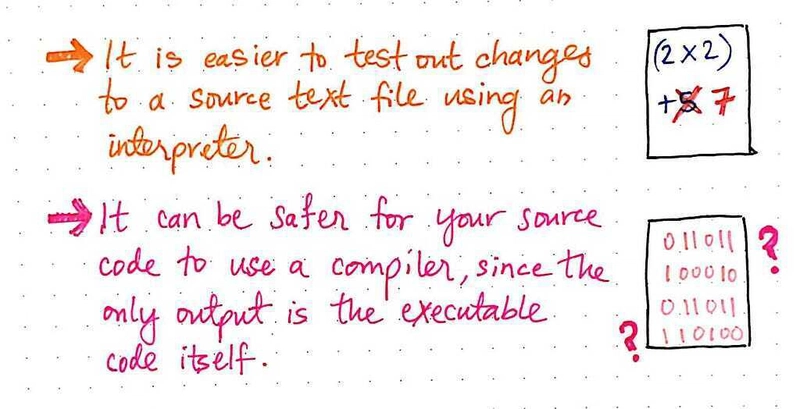 → It is easier to test out changes
to a source text file using an
interpreter.
(2 x 2)
+5 7
→ It can be safer for your source
code to use a compiler, since the
only output is the executable
code itself.
011011 ?
100010
011011
? 110100